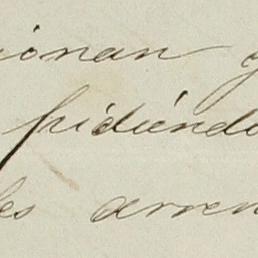 ionan y
pidiéndo
les arren